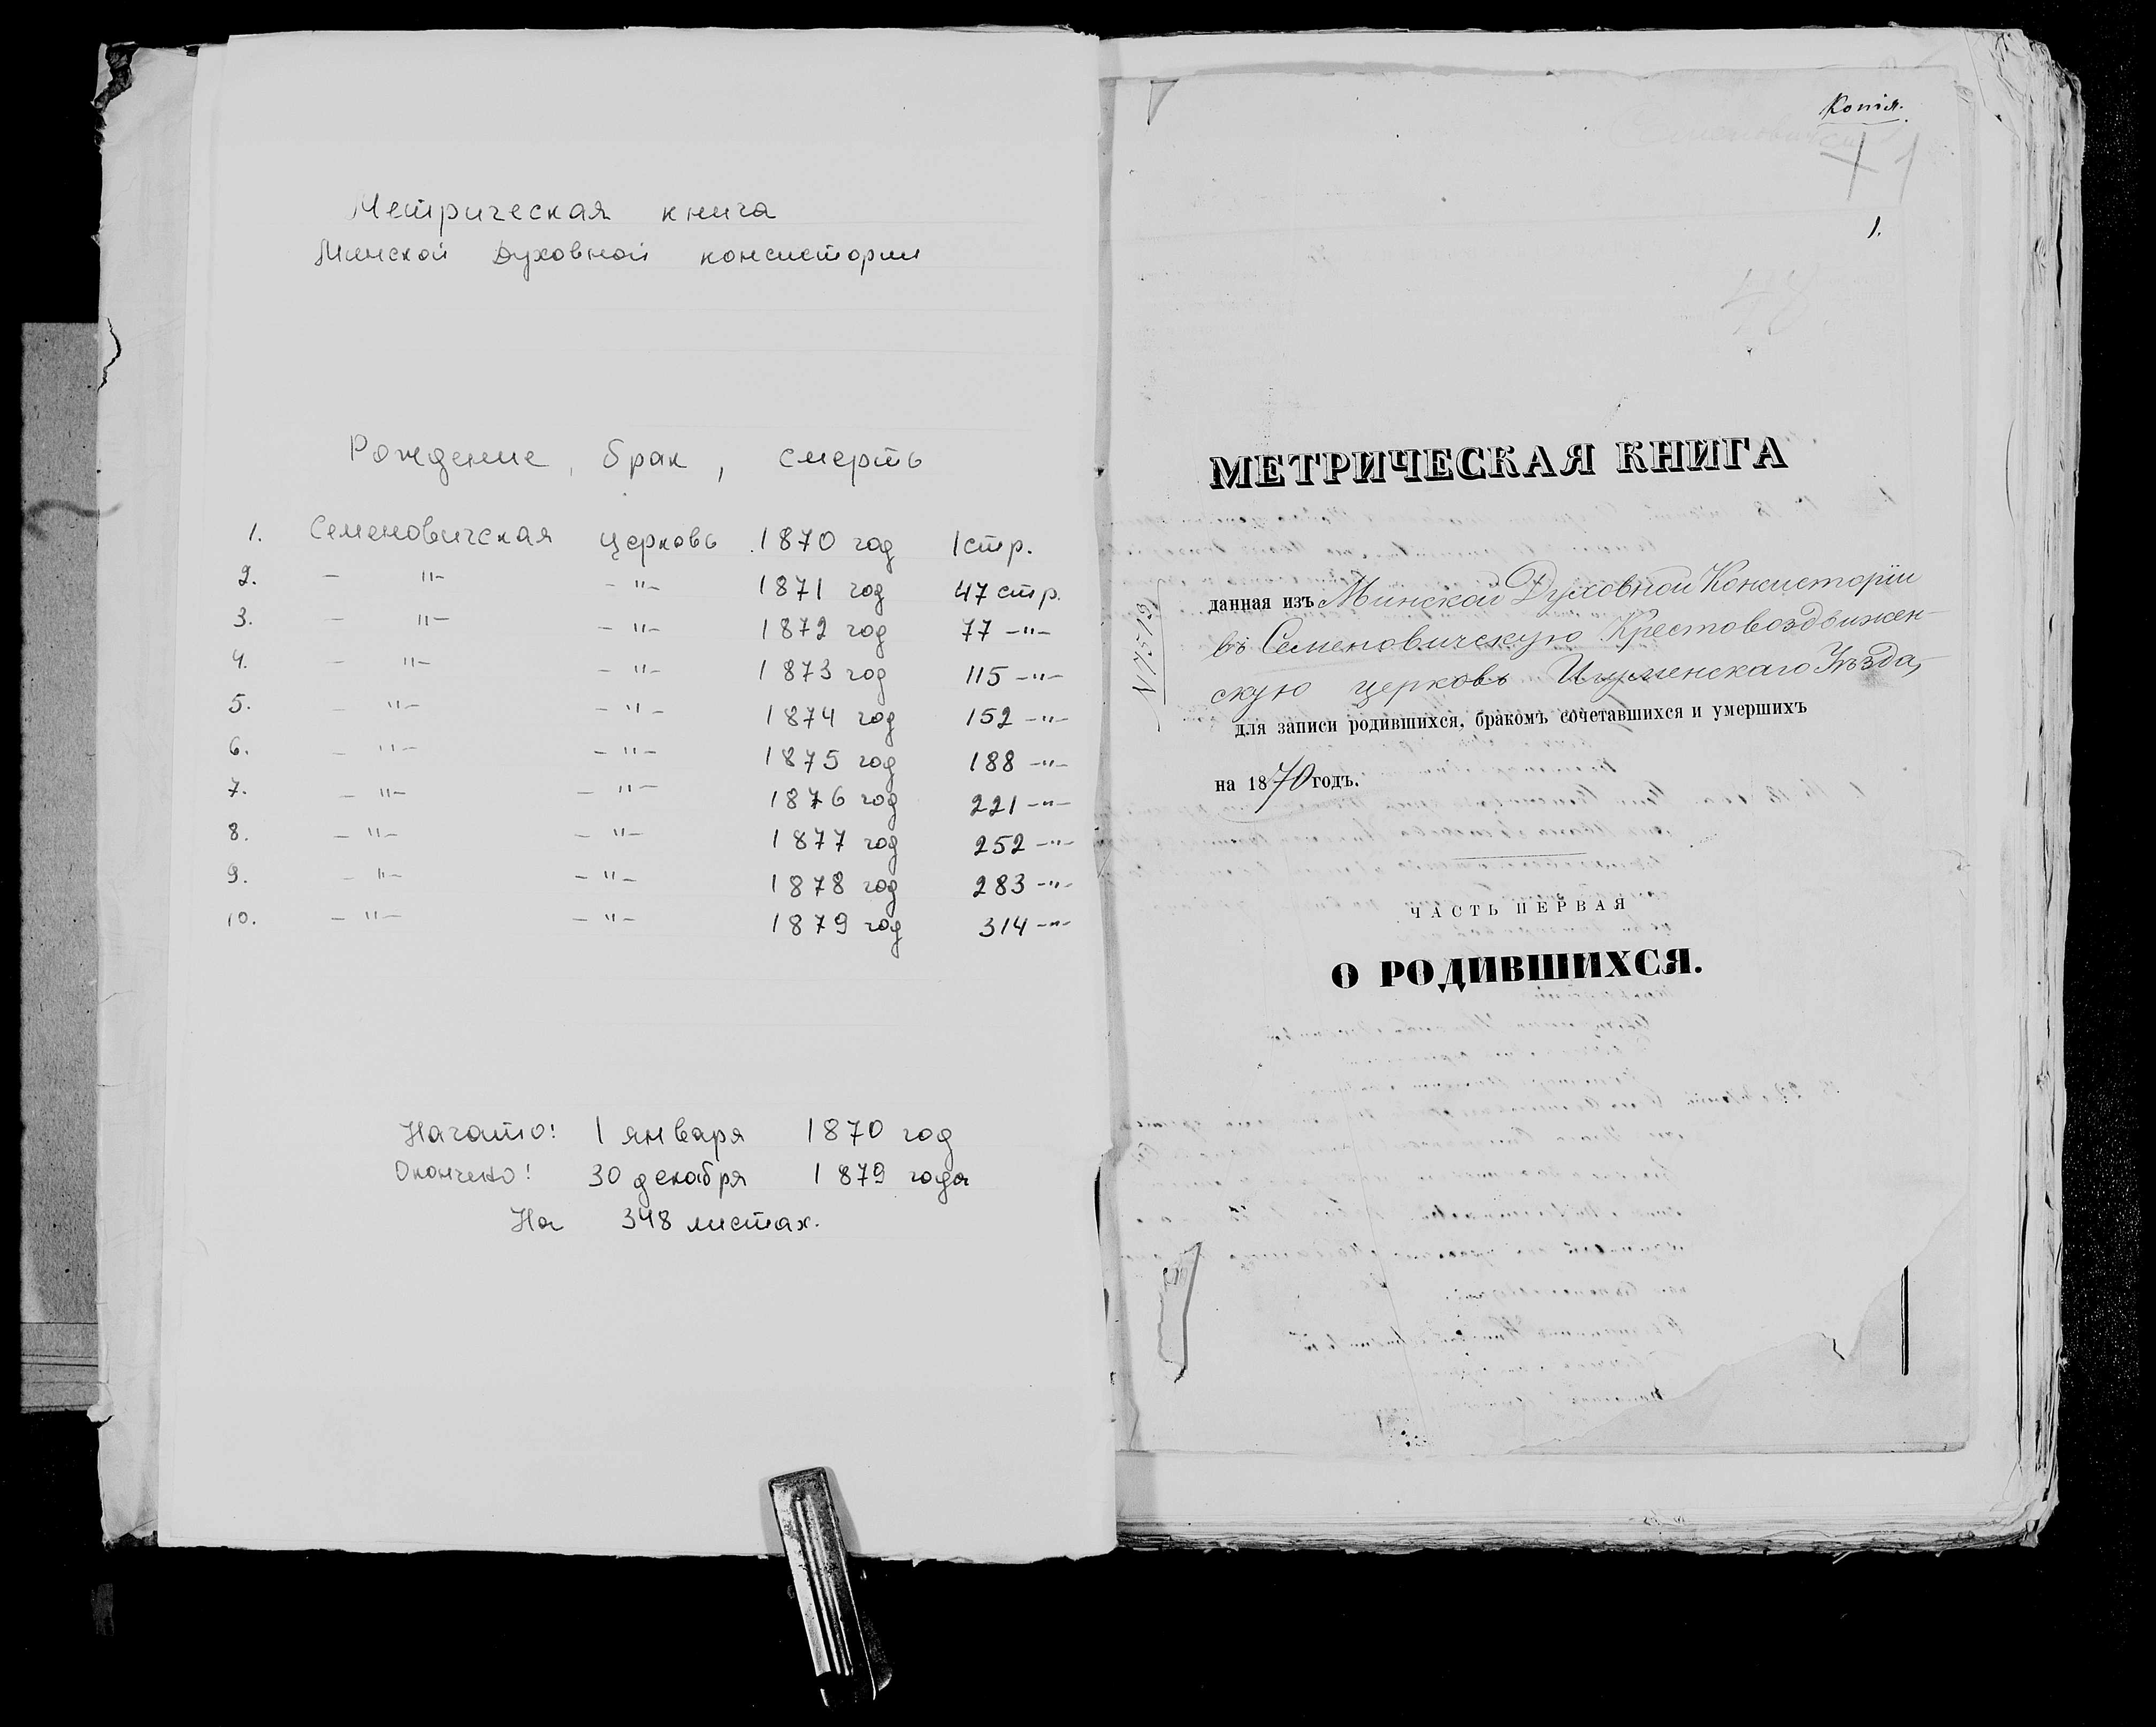 Метрическая книга
Минской Духовной консистории
Рождение, брак, смерть
1. Семеновичская церковь 1870 год 1 стр.
2. - "- - "- 1871 год 47 стр.
3. - "- - "- 1872 год 77 -"-
4. - "- - "- 1873 год 115 -"-
5. - "- - "- 1874 год 152 -"-
6. - "- - "- 1875 год 188 -"-
7. - "- - "- 1876 год 221 -"-
8. - "- - "- 1877 год 252 -"-
9. - "- - "- 1878 год 283 -"-
10. - "- - "- 1879 год 314 -"-
Начато: 1 января 1870 год
Окончено: 30 декабря 1879 года
На 348 листах.
Копія.
1
1.
48
МЕТРИЧЕСКАЯ КНИГА
данная изъ Минской Духовной Консисторіи
въ Семеновичскую Крестовоздвижен-
скую церковь Игуменскаго Уѣзда,
для записи родившихся, бракомъ сочетавшихся и умершихъ
на 1870 годъ.
ЧАСТЬ ПЕРВАЯ
О РОДИВШИХСЯ.